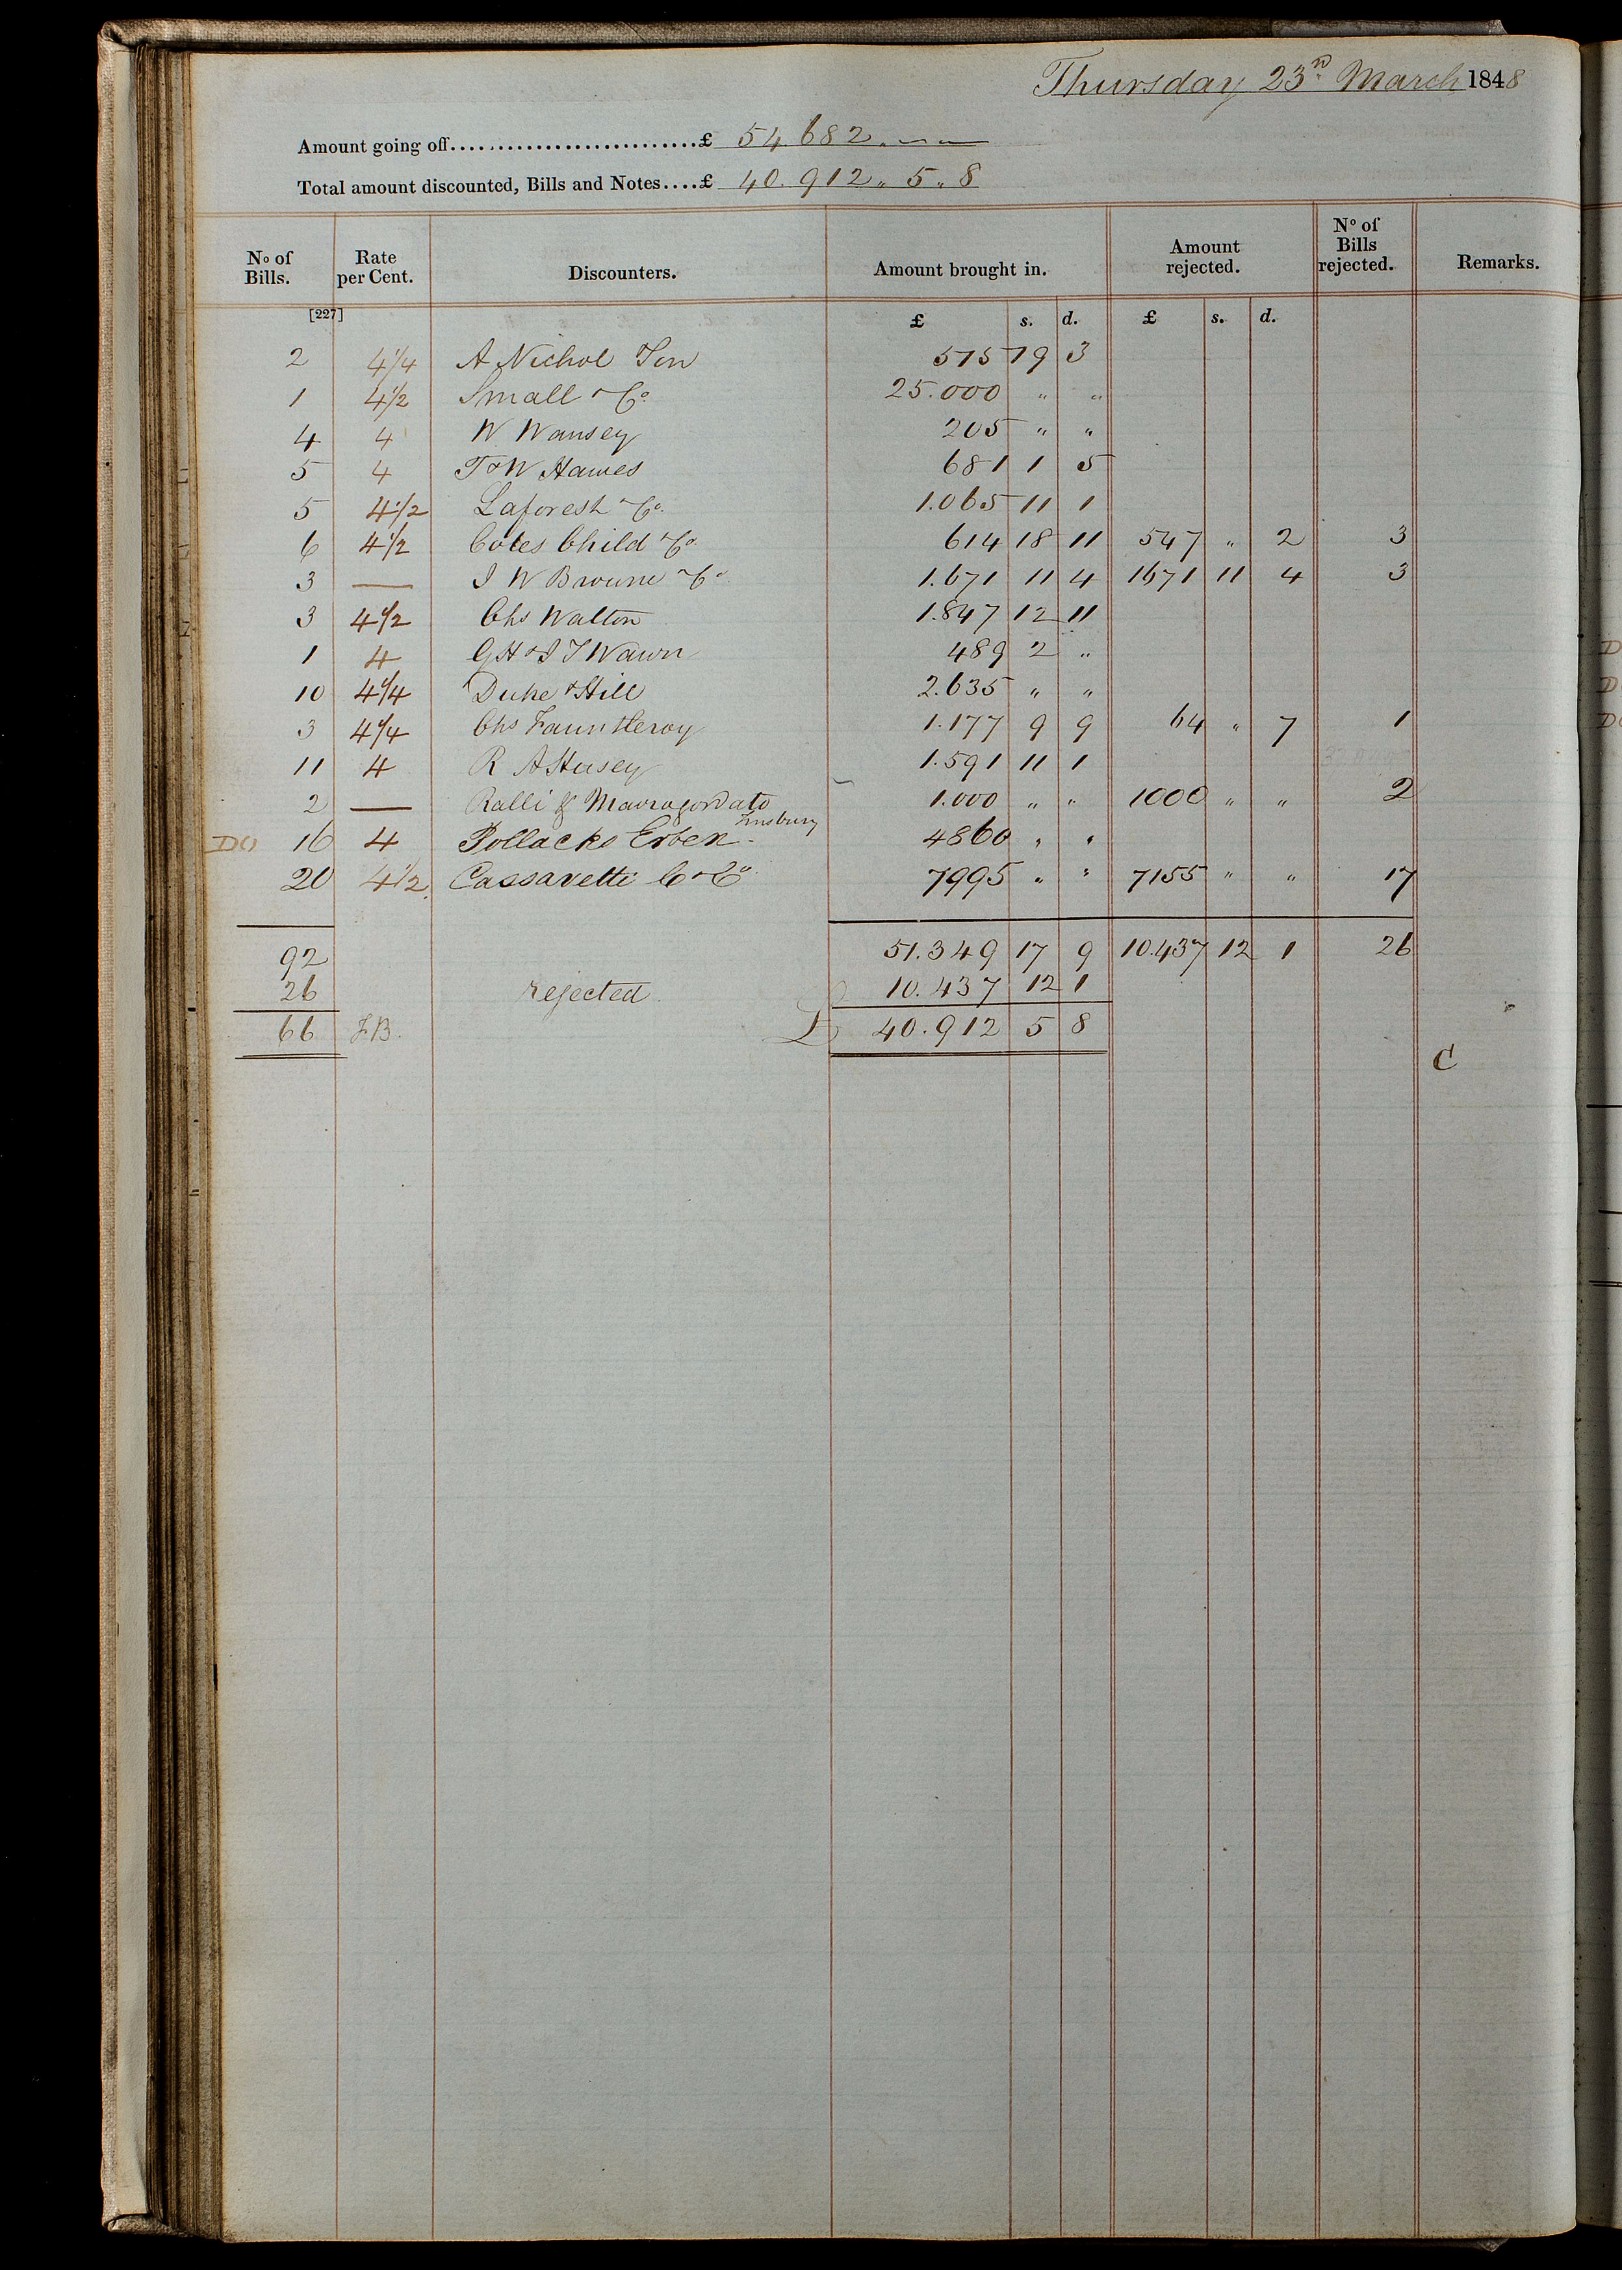 Thursday 23rd March 1848
Amount going off..........................£ 54.682 . — —
Total amount discounted, Bills and Notes....£ 40.912 " 5 " 8
No of Bills. Rate per Cent. Discounters. Amount brought in. Amount rejected. No of Bills rejected. Remarks.
[227] £ s. d. £ s. d.
2 4 1/4 A Nichol Son 515 19 3
1 4 1/2 Small & Co 25.000 " "
4 4 W Wansey 205 " "
5 4 T & W Hawes 681 1 5
5 4 1/2 Laforest & Co. 1.065 11 1
6 4 1/2 Coles Child & Co. 614 18 11 547 " 2 3
3 — J W Browne & Co. 1.671 11 4 1671 11 4 3
3 4 1/2 Chs Walton 1.847 12 11
1 4 G H & J T Wawn 489 2 "
10 4 1/4 Duke & Hill 2.635 " "
3 4 1/4 Chs Fauntleroy 1.177 9 9 64 " 7 1
11 4 R A Husey 1.591 11 1
2 — Ralli & Mavrogordato 1.000 " " 1000 " " 2
Finsbury
DO 16 4 Pollacks Erben 4860 " "
20 4 1/2 Cassavetti C & Co. 7995 " " 7155 " " 17
92 51.349 17 9 10.437 12 1 26
26 rejected 10.437 12 1
66 F.B. £ 40.912 5 8
C
D
D
DO